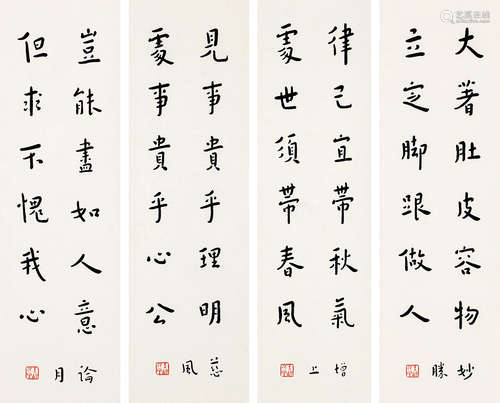 大著肚皮容物
立定脚跟做人
妙
勝
律己宜帶秋氣
處世須帶春風
增
上
見事貴乎理明
處事貴乎心公
慈
風
豈能盡如人意
但求不愧我心
論
月